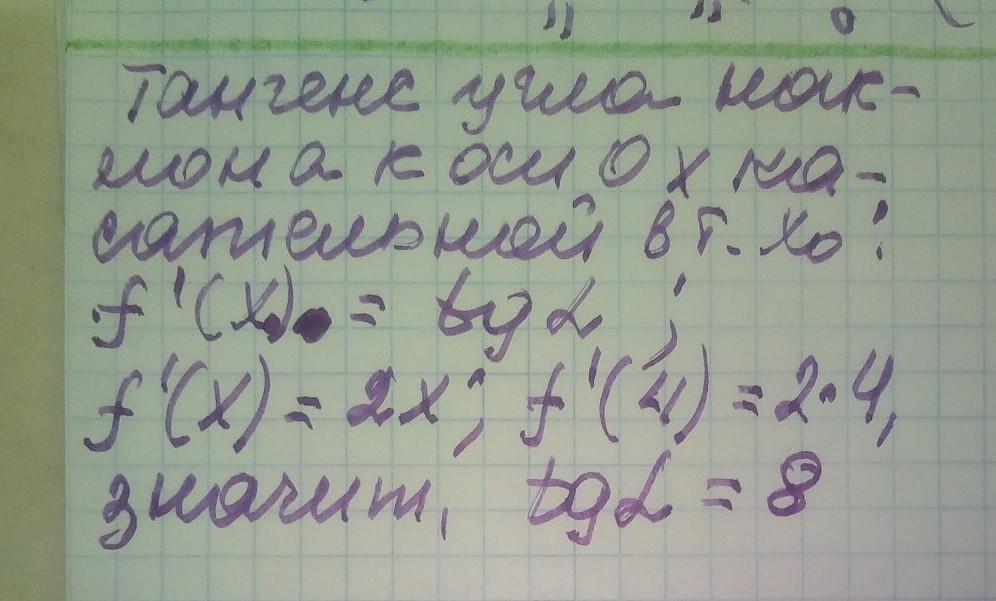 Тангенс угла нак-
лона к оси Ox ка-
сательной в т. x₀:
f'(x₀) = tg α ;
f'(x) = 2x; f'(4) = 2·4,
значит, tg α = 8